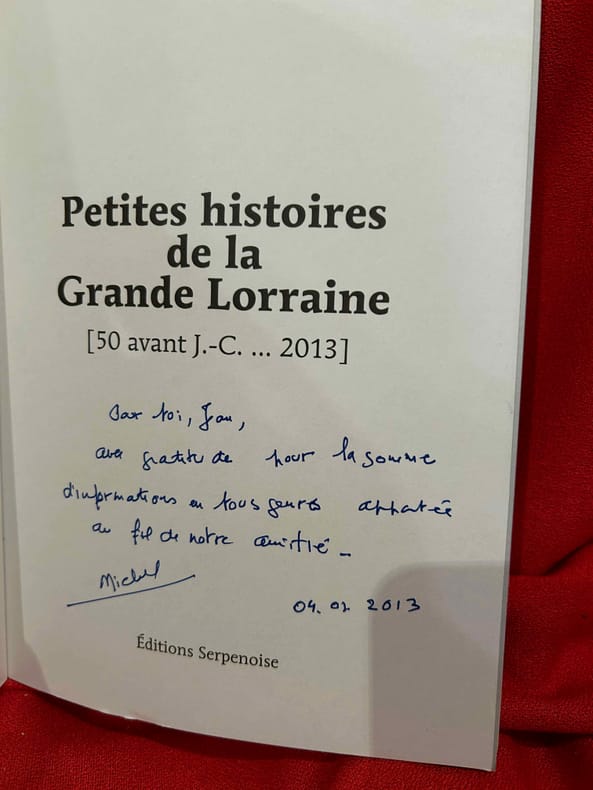 Petites histoires
de la
Grande Lorraine
[50 avant J.-C. ... 2013]
toi,
avec gratitude pour la somme
d'informations en tous genres apportée
au fil de notre amitié -
Michel
2013
Éditions Serpenoise